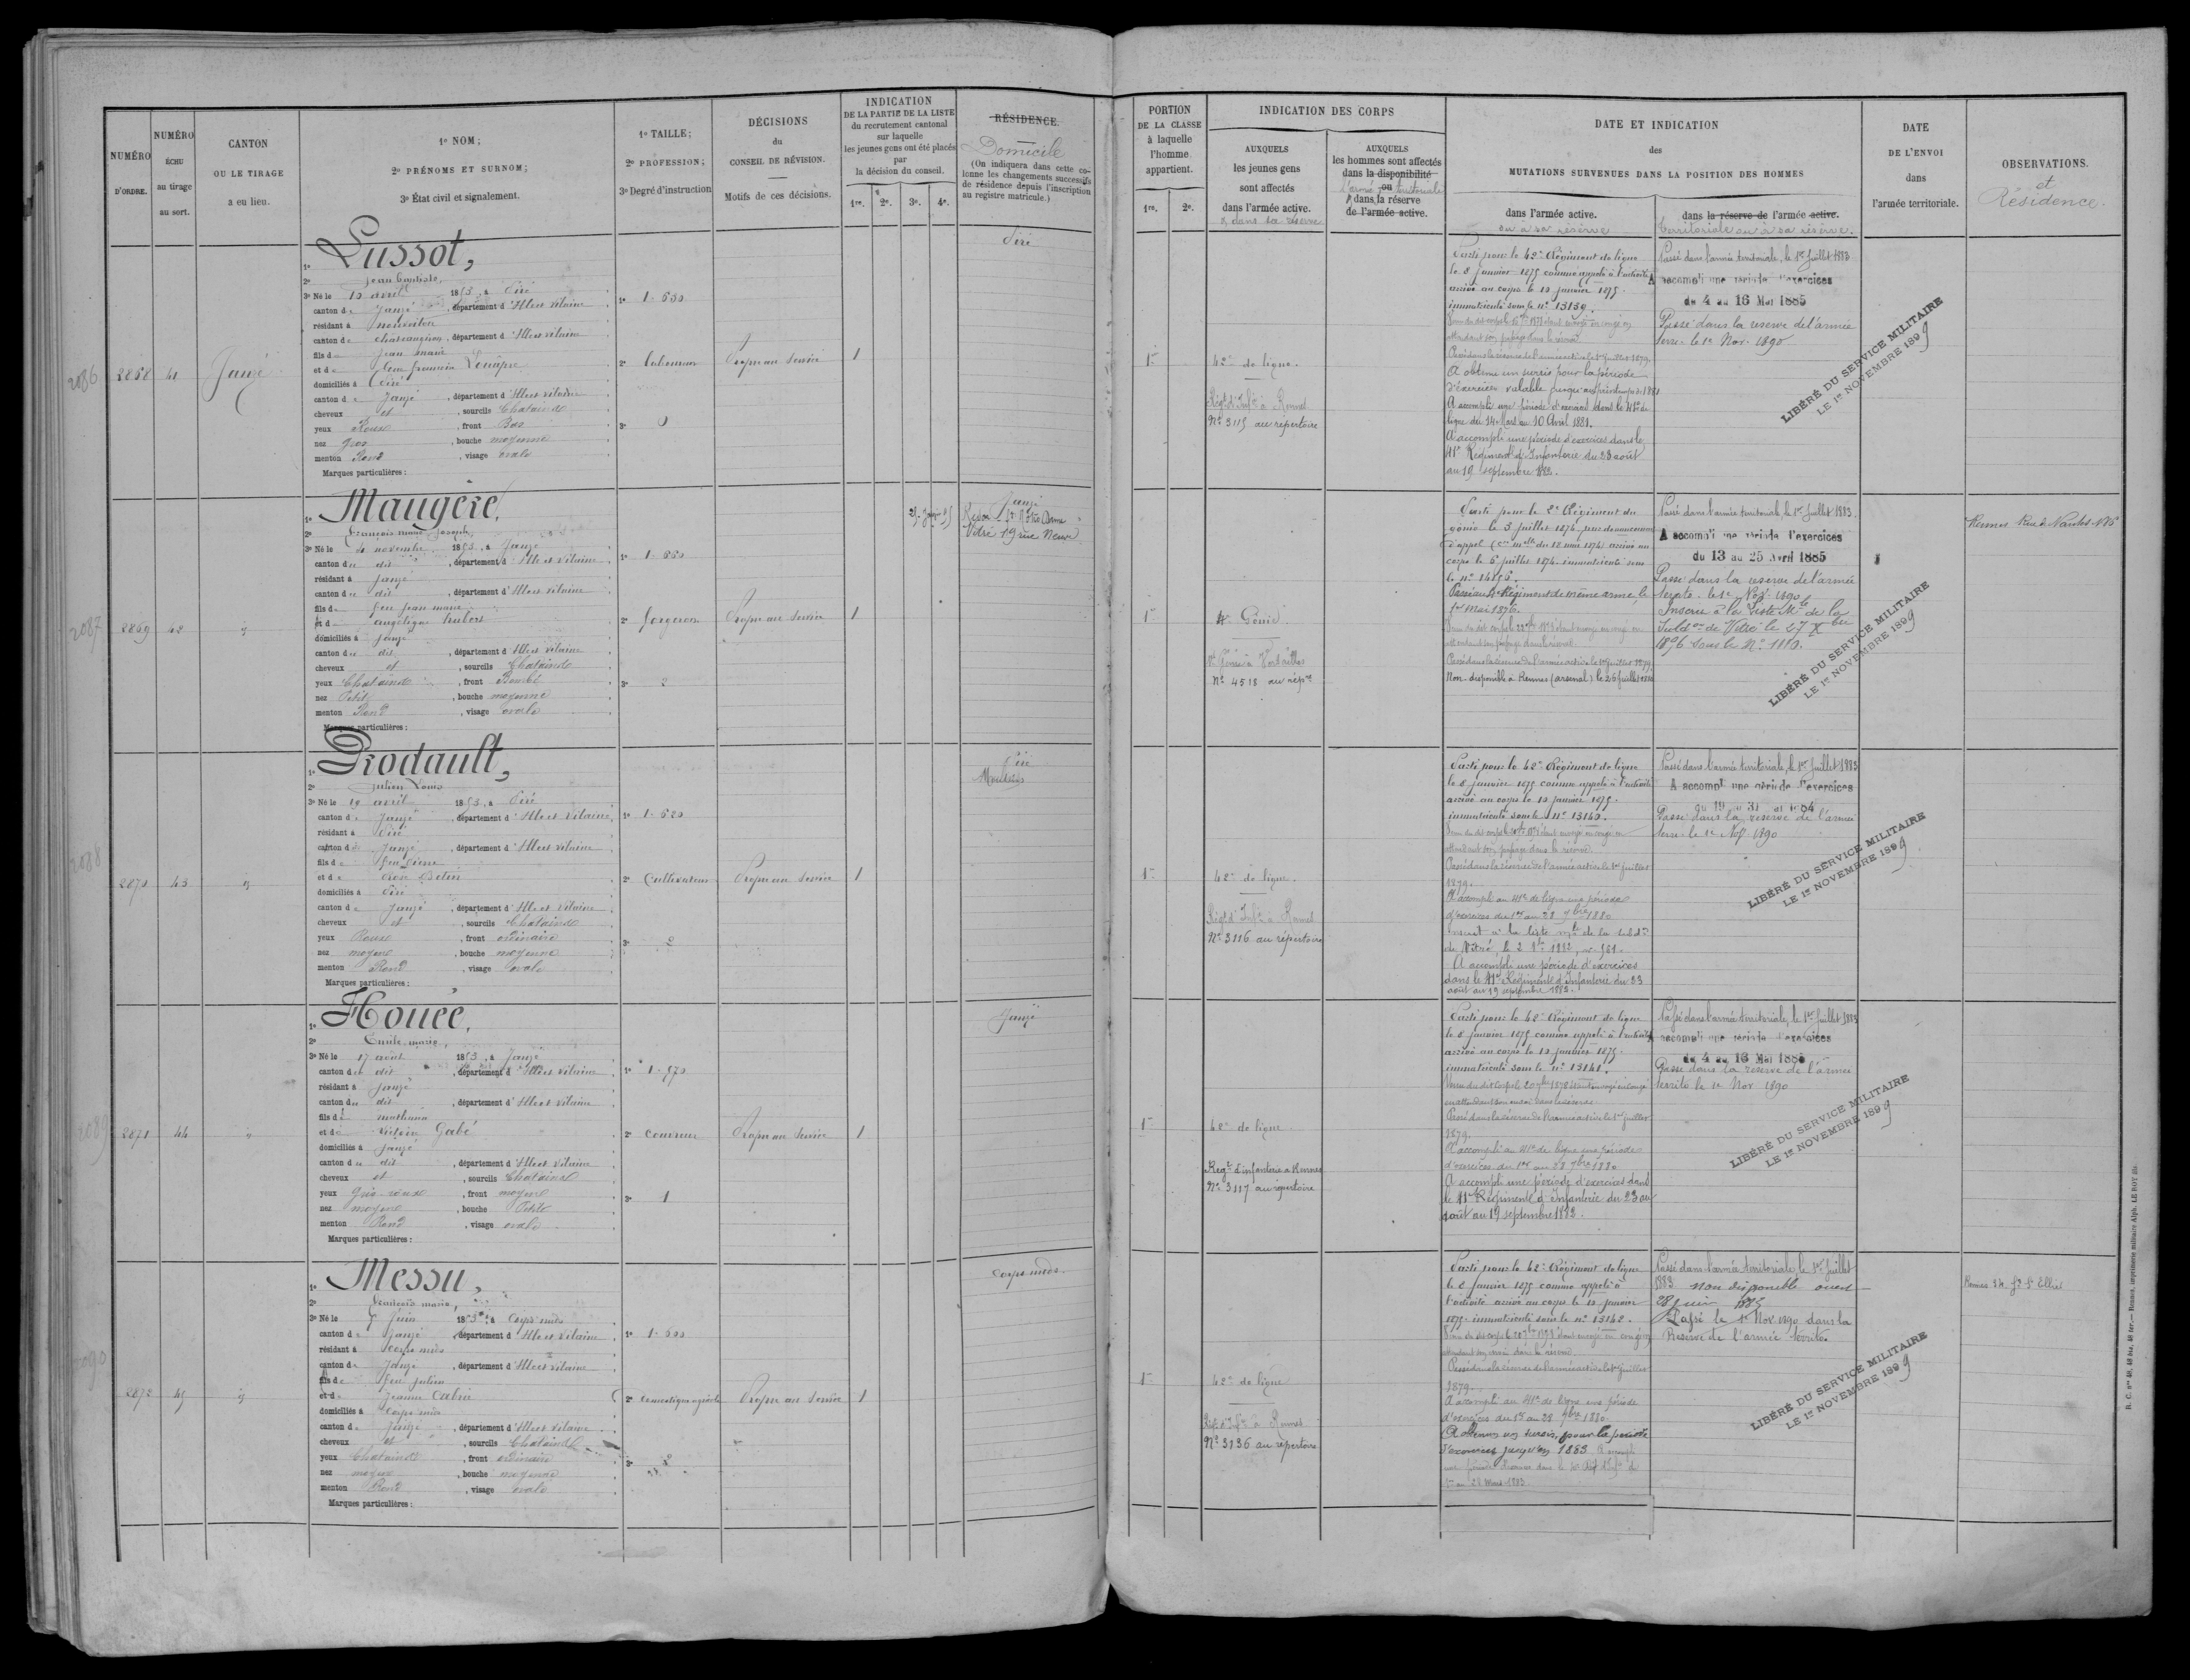 NUMÉRO
D'ORDRE.
NUMÉRO
ÉCHU
au tirage
au sort.
CANTON
OU LE TIRAGE
a eu lieu.
1º NOM;
2º PRÉNOMS ET SURNOM;
3º État civil et signalement.
1º TAILLE;
2º PROFESSION;
3º Degré d'instruction
DÉCISIONS
du
CONSEIL DE RÉVISION.
Motifs de ces décisions.
INDICATION
DE LA PARTIE DE LA LISTE
du recrutement cantonal
sur laquelle
les jeunes gens ont été placés
par
la décision du conseil.
1re. 2e. 3e. 4e.
RÉSIDENCE.
Domicile
(On indiquera dans cette co-
lonne les changements successifs
de résidence depuis l'inscription
au registre matricule.)
2086
2868
41
Janzé
1º Lussot,
2º Jean Baptiste,
3º Né le 10 avril 1853, à Piré
canton de Janzé, département d'Ille et Vilaine
résidant à
canton de, département d'Ille et Vilaine
fils de Jean Marie
et de
domiciliés à Piré
canton de Janzé, département d'Ille et Vilaine
cheveux et, sourcils Chatains
yeux Roux, front Bas
nez gros, bouche moyenne
menton Rond, visage ovale
Marques particulières :
1º 1.630
2º laboureur
3º 0
Propre au service
1
Piré
2087
2869
42
1º Maugère,
2º François Marie Joseph,
3º Né le 4 novembre 1853, à Janzé
canton du dit, département d'Ille et Vilaine
résidant à Janzé
canton du dit, département d'Ille et Vilaine
fils de feu Jean Marie
et de angélique hubert
domiciliés à Janzé
canton du dit, département d'Ille et Vilaine
cheveux et, sourcils Chatains
yeux Chatains, front Bombé
nez Petit, bouche moyenne
menton Rond, visage ovale
Marques particulières :
1º 1.660
2º forgeron
3º 2
Propre au service
1
Janzé
Vitré 19 rue Neuve
2088
2870
43
1º Prodault,
2º Julien Louis
3º Né le 19 avril 1853, à Piré
canton de Janzé, département d'Ille et Vilaine
résidant à Piré
canton de Janzé, département d'Ille et Vilaine
fils de feu Pierre
et de
domiciliés à Piré
canton de Janzé, département d'Ille et Vilaine
cheveux et, sourcils Chatains
yeux Roux, front ordinaire
nez moyen, bouche moyenne
menton Rond, visage ovale
Marques particulières :
1º 1.620
2º Cultivateur
3º 2
Propre au service
1
Piré
2089
2871
44
1º Houée,
2º Emile Marie,
3º Né le 17 août 1853, à Janzé
canton du dit, département d'Ille et Vilaine
résidant à Janzé
canton du dit, département d'Ille et Vilaine
fils de mathurin
et de Victoire Gabé
domiciliés à Janzé
canton du dit, département d'Ille et Vilaine
cheveux et, sourcils Chatains
yeux Gris roux, front moyen
nez moyen, bouche Petite
menton Rond, visage ovale
Marques particulières :
1º 1.570
2º couvreur
3º 1
Propre au service
1
Janzé
2090
2872
45
1º Messu,
2º François Marie,
3º Né le 5 Juin 1853, à Corps nuds
canton de Janzé, département d'Ille et Vilaine
résidant à Corps nuds
canton de Janzé, département d'Ille et Vilaine
fils de feu Julien
et de Jeanne
domiciliés à Corps nuds
canton de Janzé, département d'Ille et Vilaine
cheveux et, sourcils Chatains
yeux Chatains, front ordinaire
nez moyen, bouche moyenne
menton Rond, visage ovale
Marques particulières :
1º 1.600
2º domestique agricole
3º 2
Propre au service
1
Corps nuds
PORTION
DE LA CLASSE
à laquelle
l'homme
appartient.
1re. 2e.
INDICATION DES CORPS
AUXQUELS
les jeunes gens
sont affectés
dans l'armée active.
& dans sa réserve
AUXQUELS
les hommes sont affectés
dans la disponibilité
ou
l'armée territoriale
& dans la réserve
de l'armée active.
DATE ET INDICATION
des
MUTATIONS SURVENUES DANS LA POSITION DES HOMMES
dans l'armée active.
ou à sa réserve
dans la réserve de l'armée active.
territoriale ou à sa réserve.
DATE
DE L'ENVOI
dans
l'armée territoriale.
OBSERVATIONS.
et
Résidence.
1re
42e de ligne.
Régt d'Infie à Rennes
Nº 3115 au répertoire
Parti pour le 42e Régiment de ligne
le 8 janvier 1875 comme appelé à l'activité
arrivé au corps le 10 janvier 1875.
immatriculé sous le nº 13139.
Passé dans la réserve de l'armée active le 1er juillet 1879.
A obtenu un sursis pour la période
d'exercices valable jusqu'au printemps de 1881
A accompli une période d'exercices dans le 41e de
ligne du 14 Mars au 10 Avril 1881.
A accompli une période d'exercices dans le
41e Régiment d'Infanterie du 23 août
au 19 septembre 1882.
Passé dans l'armée territoriale, le 1er Juillet 1883
A accompli une période d'exercices
du 4 au 16 Mai 1885
Passé dans la reserve de l'armée
terre le 1er Nov. 1890
LIBÉRÉ DU SERVICE MILITAIRE
LE 1er NOVEMBRE 1899
1re
4e Génie.
Nº 4518 au répre
Parti pour le 2e Régiment du
génie le 3 juillet 1874
corps le 6 juillet 1874 immatriculé sous
le nº 14856.
Passé au 4e Régiment de même arme le
1er Mai 1876.
Passé dans la réserve de l'armée active le 1er juillet 1879.
Non-disponible à Rennes (arsenal) le 26 Juillet 1880
Passé dans l'armée territoriale, le 1er Juillet 1883.
A accompli une période d'exercices
du 13 au 25 Avril 1885
Passé dans la reserve de l'armée
territe. le 1er Nov. 1890
Inscrit à la liste Mle de la
Subdon de Vitré le 27 Xbre
1876 sous le Nº 1110.
LIBÉRÉ DU SERVICE MILITAIRE
LE 1er NOVEMBRE 1899
Rennes Rue de Nantes
1re
42e de ligne.
Régt d'Infie à Rennes
Nº 3116 au répertoire
Parti pour le 42e Régiment de ligne
le 8 janvier 1875 comme appelé à l'activité
arrivé au corps le 10 janvier 1875.
immatriculé sous le nº 13140.
Passé dans la réserve de l'armée active le 1er juillet
1879.
A accompli au 41e de ligne une période
d'exercices du 1er au 28 7bre 1880
Inscrit à la liste mle de la subdon
A accompli une période d'exercices
dans le 41e Régiment d'Infanterie du 23
août au 19 septembre 1882.
Passé dans l'armée territoriale, le 1er Juillet 1883
A accompli une période d'exercices
Passé dans la reserve de l'armée
terre le 1er Nov. 1890
LIBÉRÉ DU SERVICE MILITAIRE
LE 1er NOVEMBRE 1899
1re
42e de ligne
Régt d'infanterie à Rennes
Nº 3117 au répertoire
Parti pour le 42e Régiment de ligne
le 8 janvier 1875 comme appelé à l'activité
arrivé au corps le 10 janvier 1875.
immatriculé sous le nº 13141.
Passé dans la réserve de l'armée active le 1er juillet
1879.
A accompli au 41e de ligne une période
d'exercices du 1er au 28 7bre 1880
A accompli une période d'exercices dans
le 41e Régiment d'Infanterie du 23 au
août au 19 septembre 1882.
Passé dans l'armée territoriale, le 1er Juillet 1883
A accompli une période d'exercices
du 4 au 16 Mai 1885
Passé dans la reserve de l'armée
territe le 1er Nov 1890
LIBÉRÉ DU SERVICE MILITAIRE
LE 1er NOVEMBRE 1899
1re
42e de ligne
Régt d'Infie à Rennes
Nº 3136 au répertoire
Parti pour le 42e Régiment de ligne
le 8 janvier 1875 comme appelé à
l'activité arrivé au corps le 10 janvier
1875. immatriculé sous le nº 13142.
Passé dans la réserve de l'armée active le 1er juillet
1879.
A accompli au 41e de ligne une période
d'exercices du 1er au 28 7bre 1880.
A obtenu un sursis, pour la période
d'exercices jusqu'en 1883
Passé dans l'armée territoriale, le 1er Juillet
1883. non disponible ouest
28 juin 1883
Passé le 1er Nov. 1890 dans la
Reserve de l'armée territe.
LIBÉRÉ DU SERVICE MILITAIRE
LE 1er NOVEMBRE 1899
R. C. nos 46, 46 bis, 46 ter. — Rennes, imprimerie militaire Alph. LE ROY fils